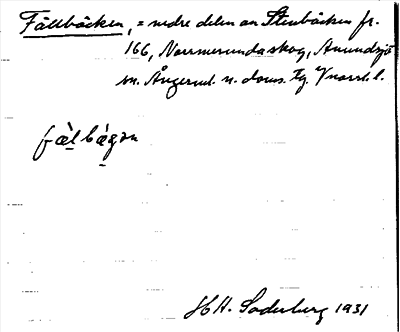 Fällbäcken, = nedre delen av Stenbäcken fr.
166, Norrmesundaskog, Anundsjö
sn. Ångerml. n. doms. tg. V/norrl. l.
fæ̀lbágən
H H. Söderberg 1931